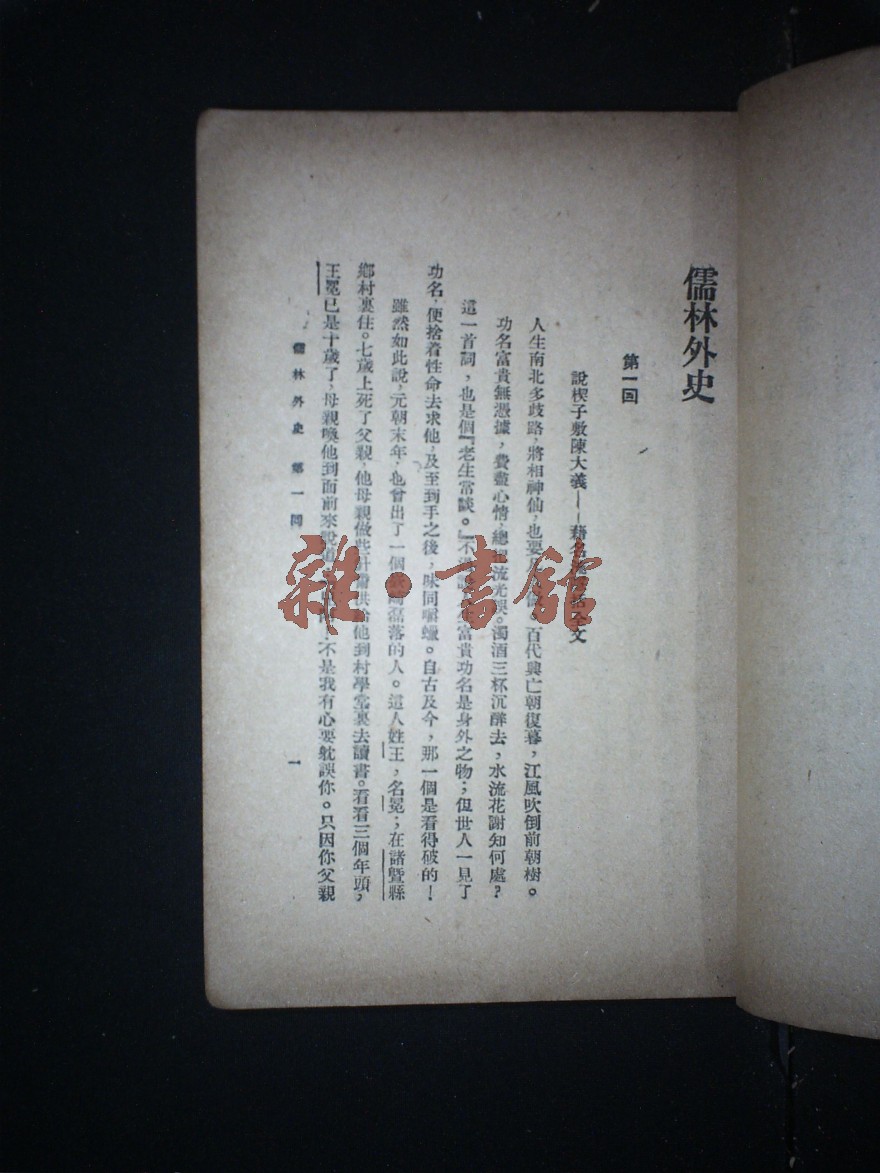 儒林外史
第一回
說楔子敷陳大義——藉名流隱括全文
人生南北多歧路，將相神仙，也要凡人做。百代興亡朝復暮，江風吹倒前朝樹。
功名富貴無憑據，費盡心情，總把流光誤。濁酒三杯沉醉去，水流花謝知何處？
這一首詞，也是個『老生常談。』不過說人生富貴功名是身外之物；但世人一見了
功名，便捨着性命去求他，及至到手之後，味同嚼蠟。自古及今，那一個是看得破的！
雖然如此說，元朝末年，也曾出了一個嶔崎磊落的人。這人姓王，名冕；在諸暨縣
鄉村裏住。七歲上死了父親，他母親做些針黹供給他到村學堂裏去讀書。看看三個年頭，
王冕已是十歲了，母親喚他到面前來說道：不是我有心要躭誤你。只因你父親
儒林外史 第一回
一
雜·書館